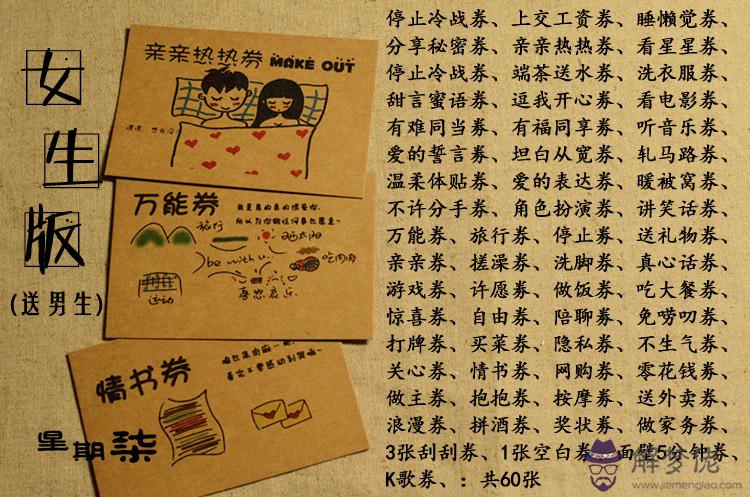 女生版
(送男生)
星期柒
亲亲热热券 MAKE OUT
万能券
旅行
晒太阳
吃肉肉
be with u
运动
喜怒哀乐
情书券
停止冷战券、上交工资券、睡懒觉券、
分享秘密券、亲亲热热券、看星星券、
停止冷战券、端茶送水券、洗衣服券、
甜言蜜语券、逗我开心券、看电影券、
有难同当券、有福同享券、听音乐券、
爱的誓言券、坦白从宽券、轧马路券、
温柔体贴券、爱的表达券、暖被窝券、
不许分手券、角色扮演券、讲笑话券、
万能券、旅行券、停止券、送礼物券、
亲亲券、搓澡券、洗脚券、真心话券、
游戏券、许愿券、做饭券、吃大餐券、
惊喜券、自由券、陪聊券、免唠叨券、
打牌券、买菜券、隐私券、不生气券、
关心券、情书券、网购券、零花钱券、
做主券、抱抱券、按摩券、送外卖券、
浪漫券、拼酒券、奖状券、做家务券、
3张刮刮券、1张空白券、面壁5分钟券、
K歌券、：共60张
解梦佬
www.jiemenglao.com